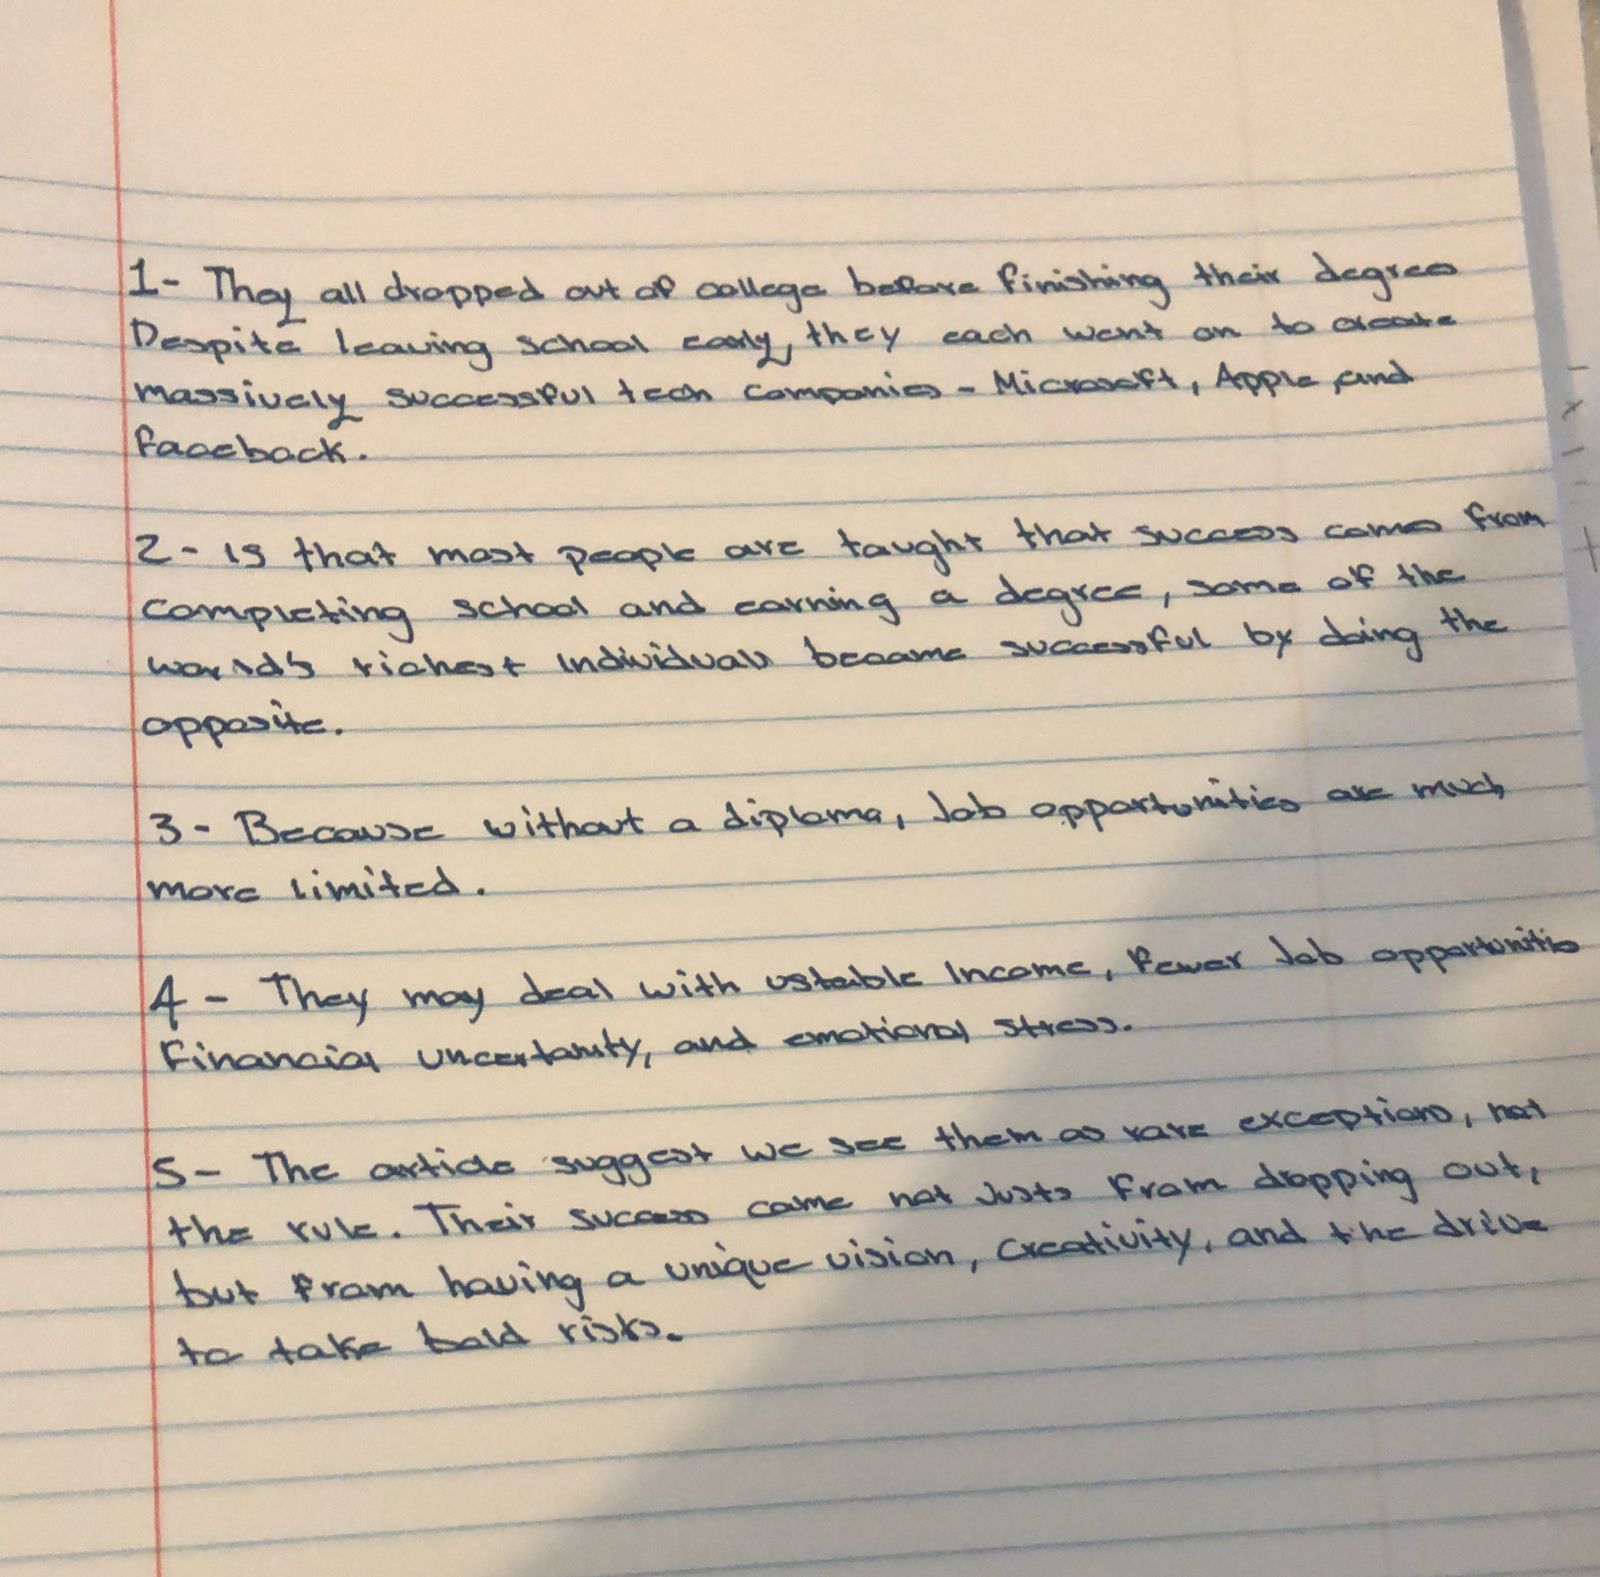 1- They all dropped out of college before finishing their degree
Despite leaving school early, they each went on to create
massively successful tech companies - Microsoft, Apple, and
facebook.
2- is that most people are taught that success comes from
completing school and earning a degree, some of the
world's richest individuals became successful by doing the
opposite.
3- Because without a diploma, Job opportunities are much
more limited.
4- They may deal with ustable Income, fewer Job opportunities
Financial uncertanity, and emotional stress.
5- The article suggest we see them as rare exceptions, not
the rule. Their success came not Justs from dropping out,
but from having a unique vision, creativity, and the drive
to take bold risks.